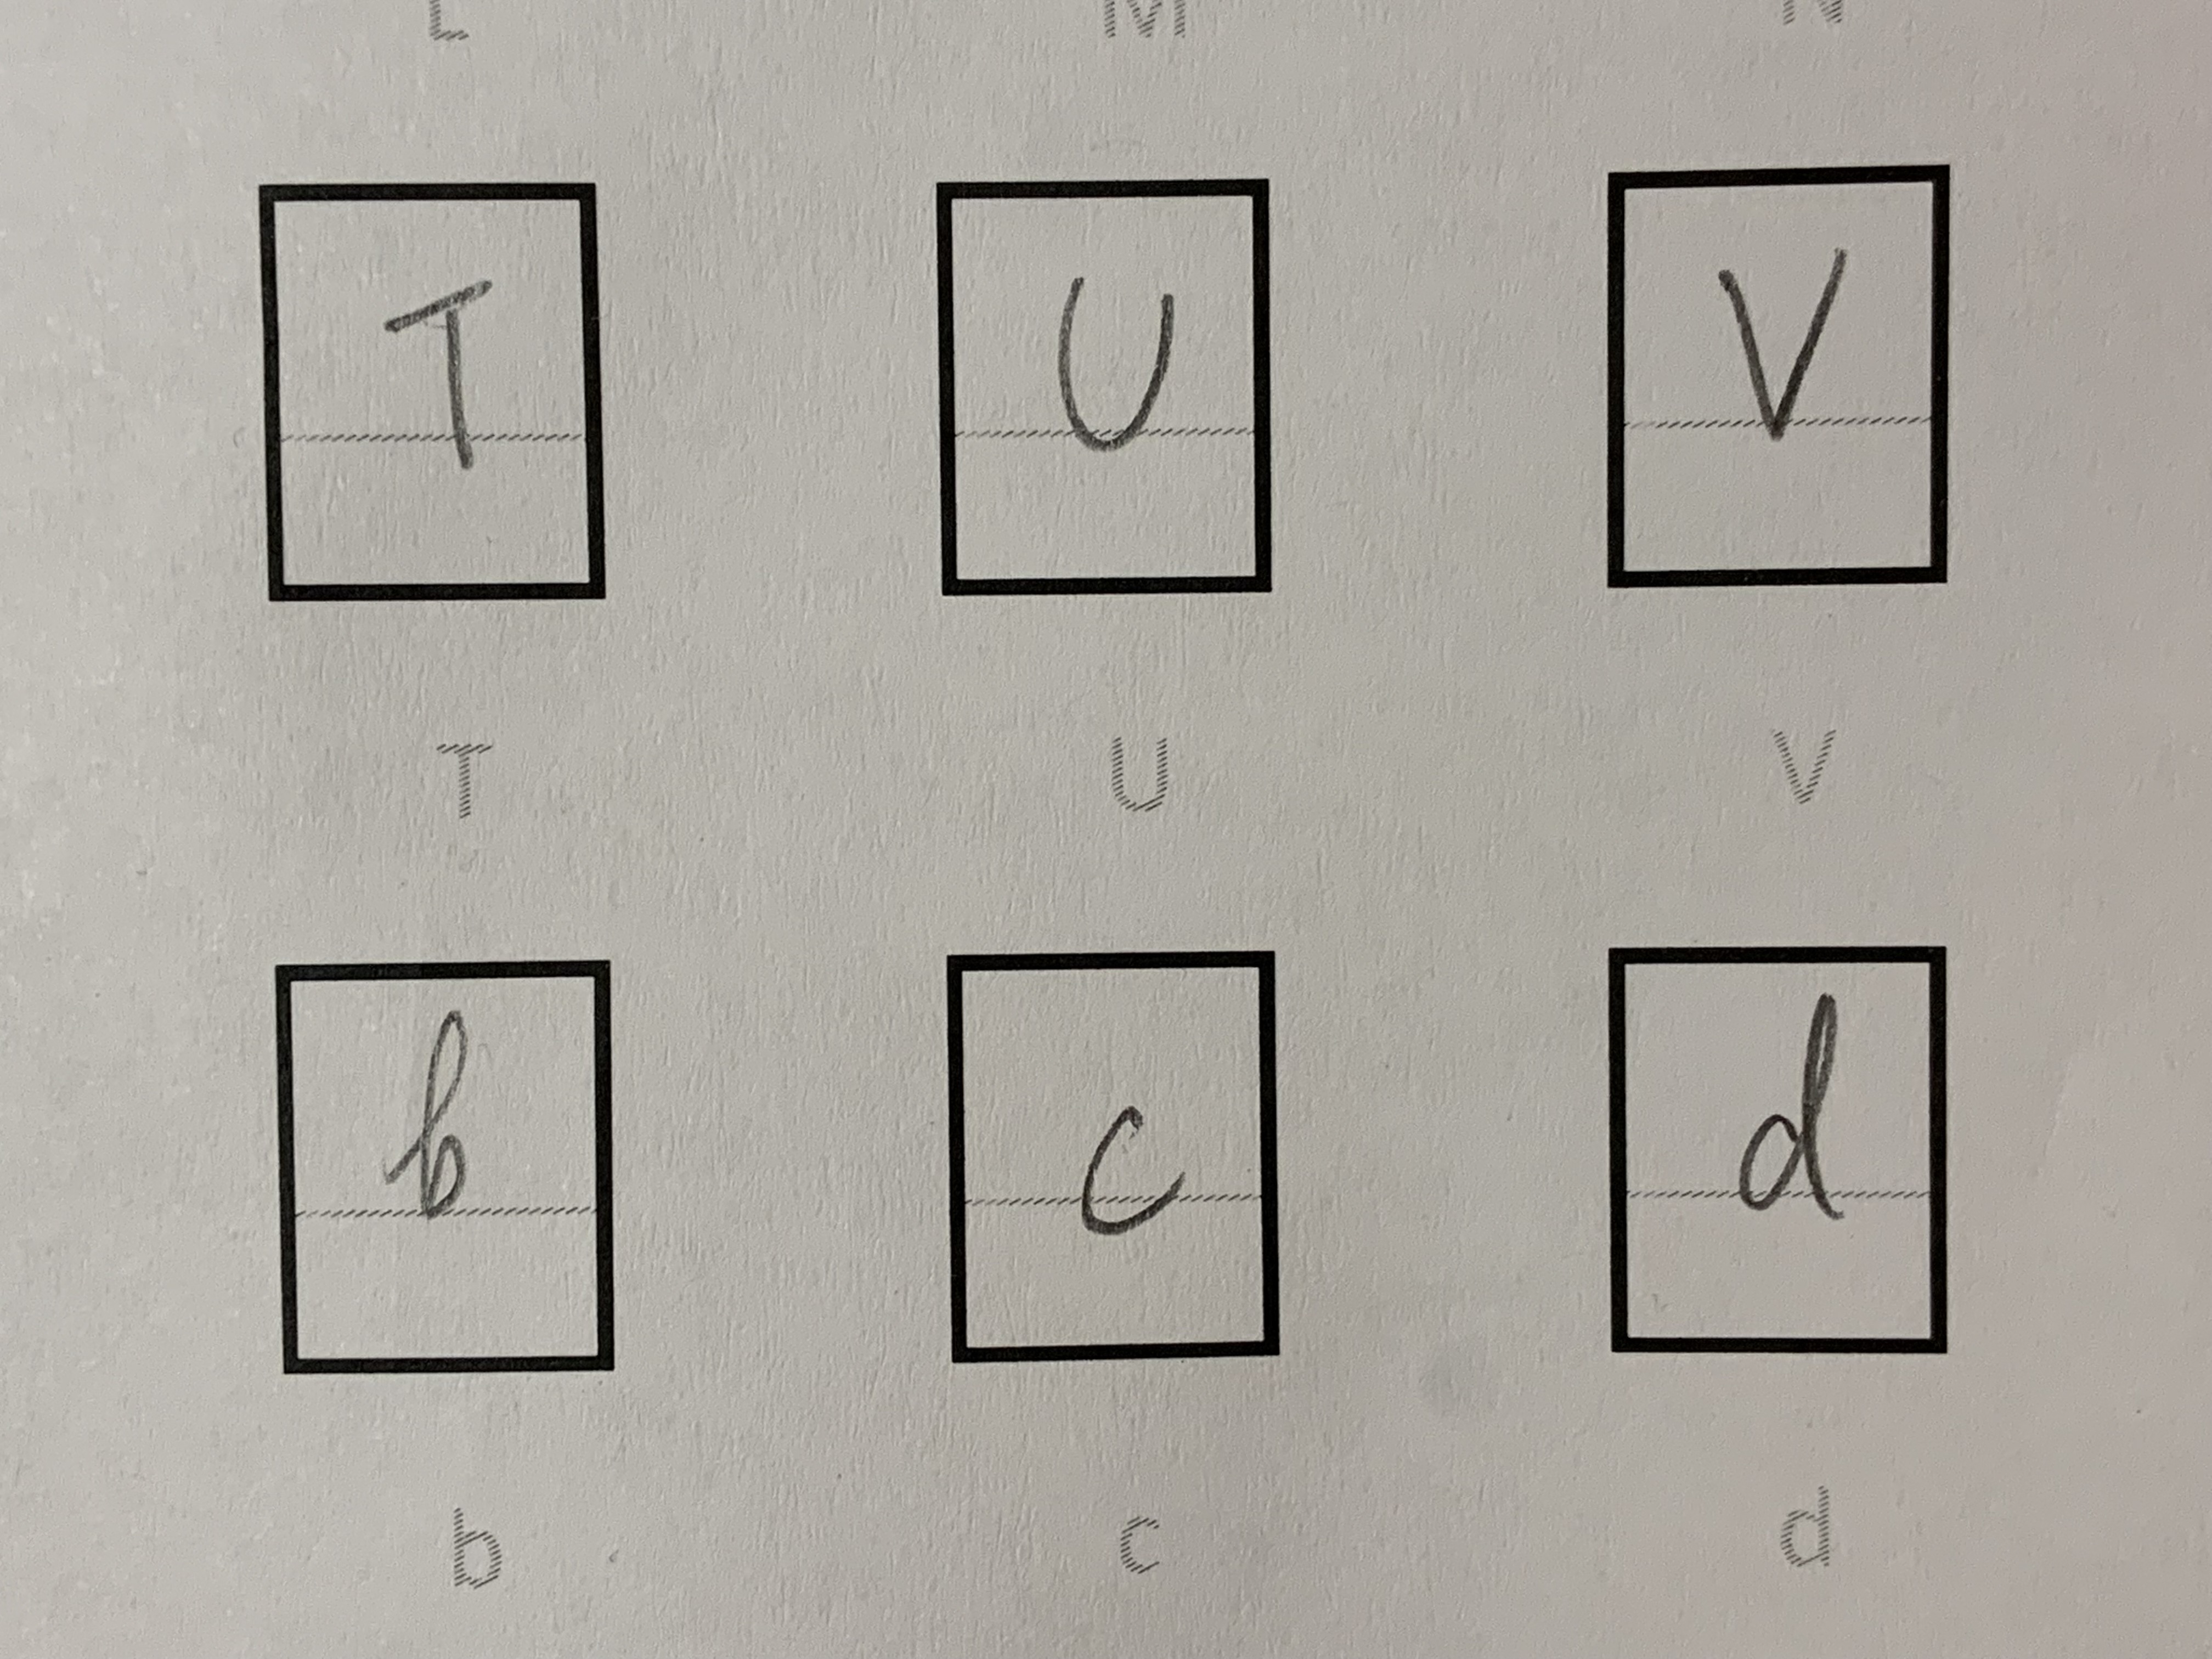 L M N
T U V
T U V
b c d
b c d